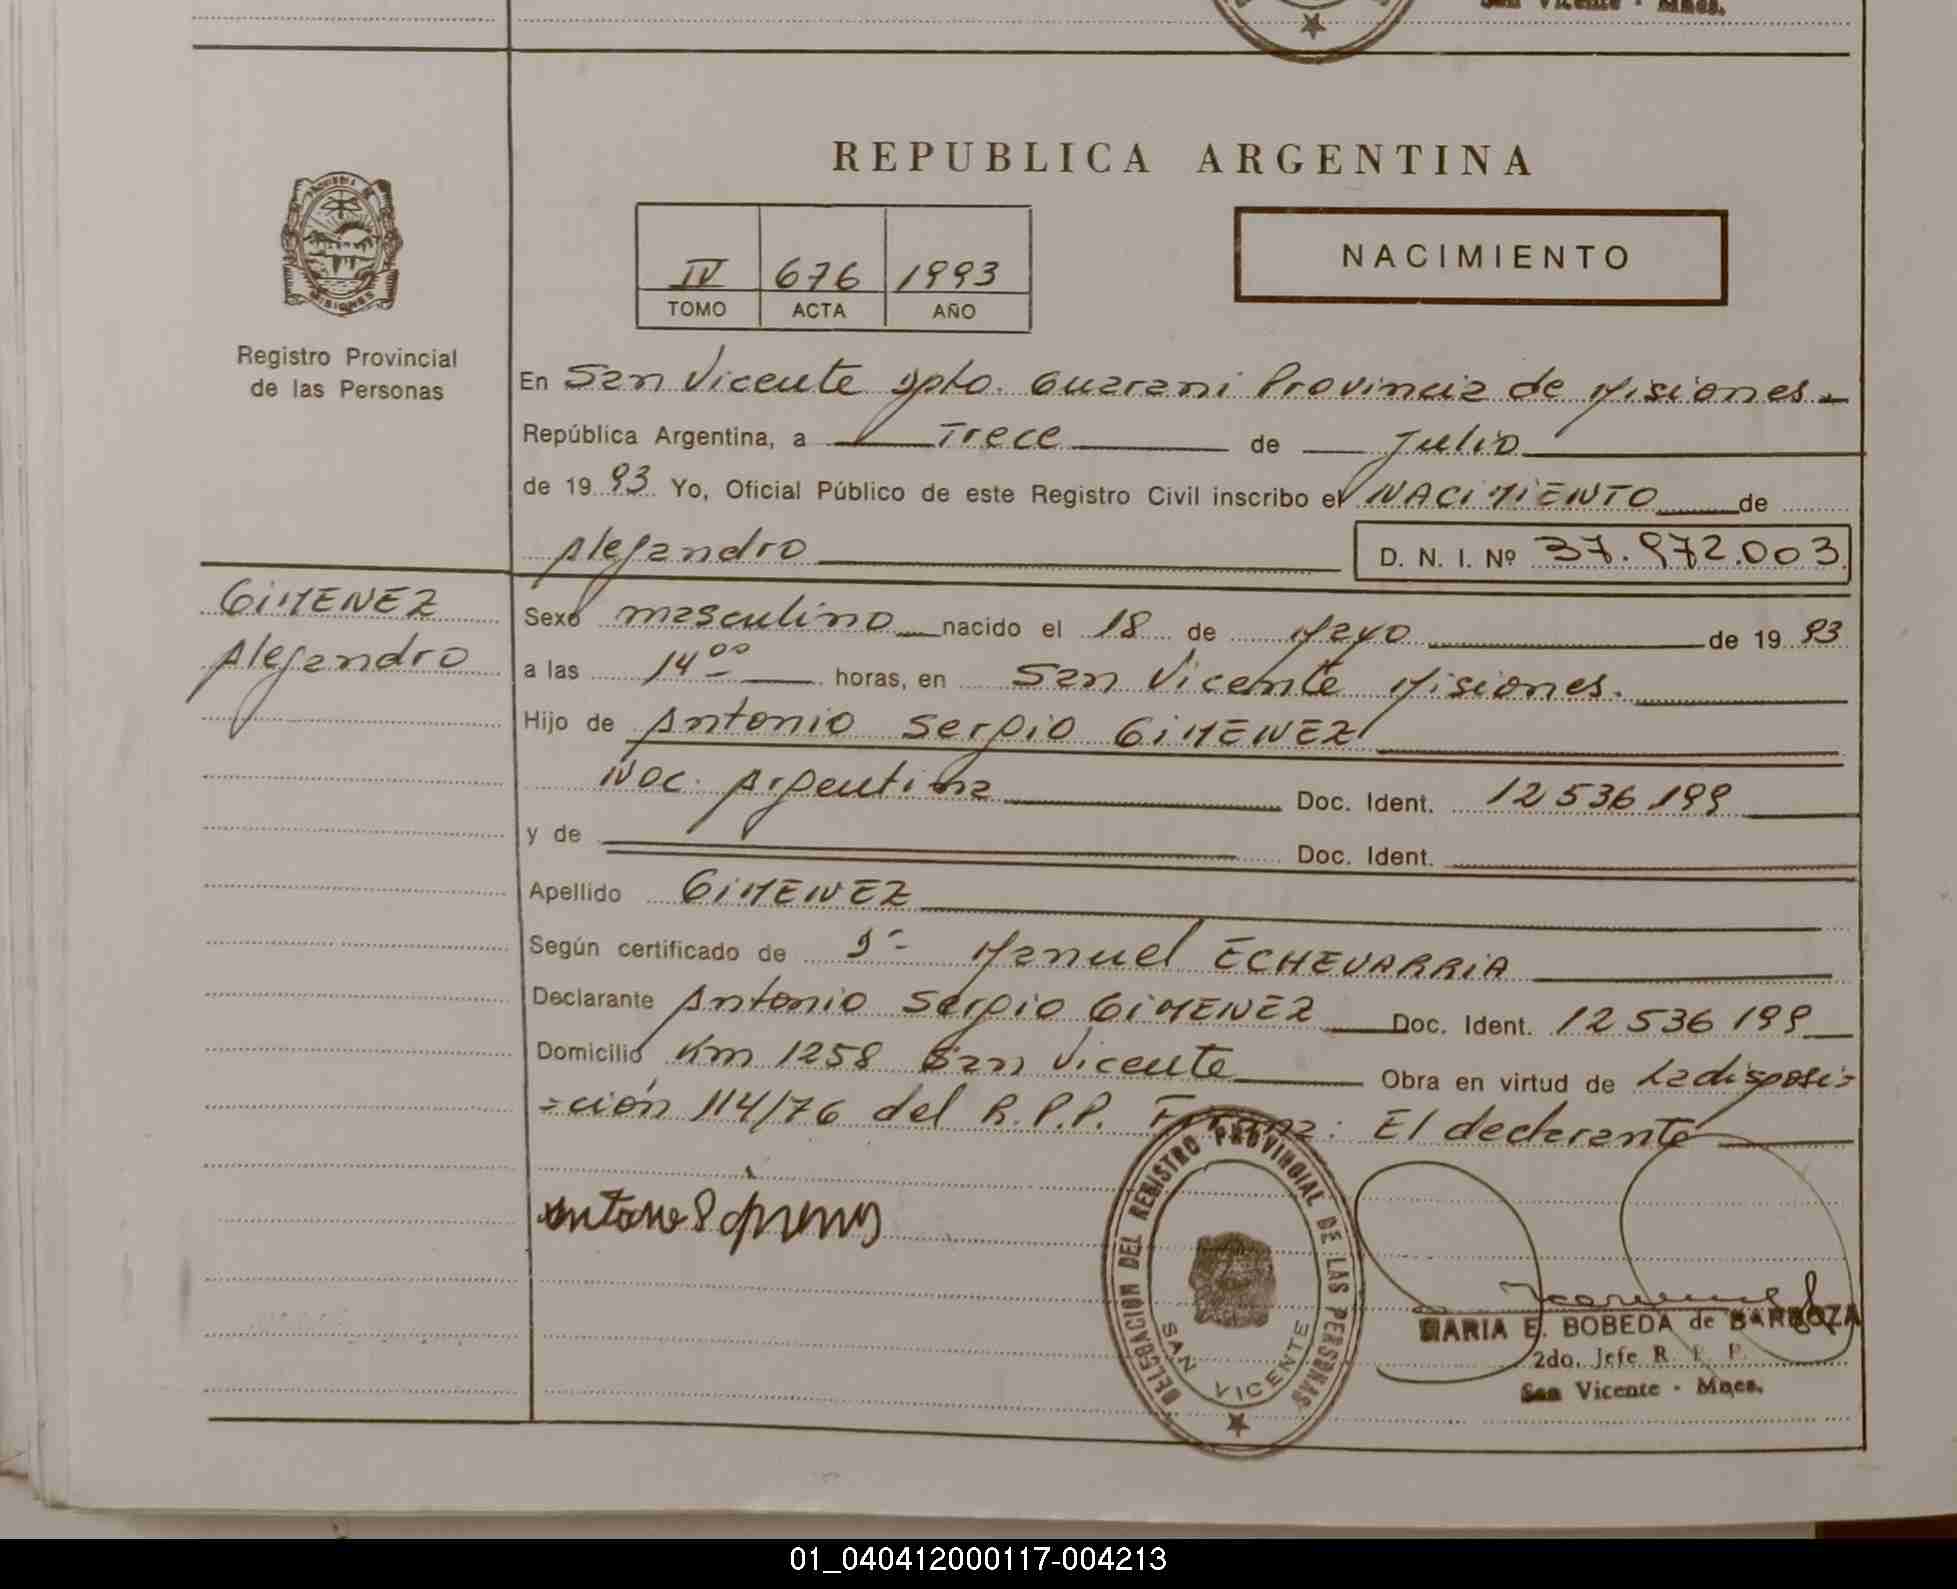 San Vicente - Mnes.
REPUBLICA ARGENTINA
NACIMIENTO
IV 676 1993
TOMO ACTA AÑO
PROVINCIA DE MISIONES
Registro Provincial
de las Personas
En San Vicente Dpto. Guarani Provincia de Misiones.
República Argentina, a Trece de Julio
de 19 93 Yo, Oficial Público de este Registro Civil inscribo el NACIMIENTO de
Alejandro D. N. I. Nº 37.972.003
GIMENEZ
Alejandro
Sexo masculino nacido el 18 de Mayo de 19 93
a las 14 00 horas, en San Vicente Misiones.
Hijo de Antonio Sergio GIMENEZ
Nac. Argentina Doc. Ident. 12 536 199
y de Doc. Ident.
Apellido GIMENEZ
Según certificado de Dr. Manuel ECHEVARRIA
Declarante Antonio Sergio GIMENEZ Doc. Ident. 12 536 199
Domicilio Km 1258 San Vicente Obra en virtud de La disposi=
=ción 114/76 del R.P.P. Firma: El declarante
DELEGACION DEL REGISTRO PROVINCIAL DE LAS PERSONAS
SAN VICENTE
MARIA E. BOBEDA de BARBOZA
2do. Jefe R. P. P.
San Vicente - Mnes.
01_040412000117-004213